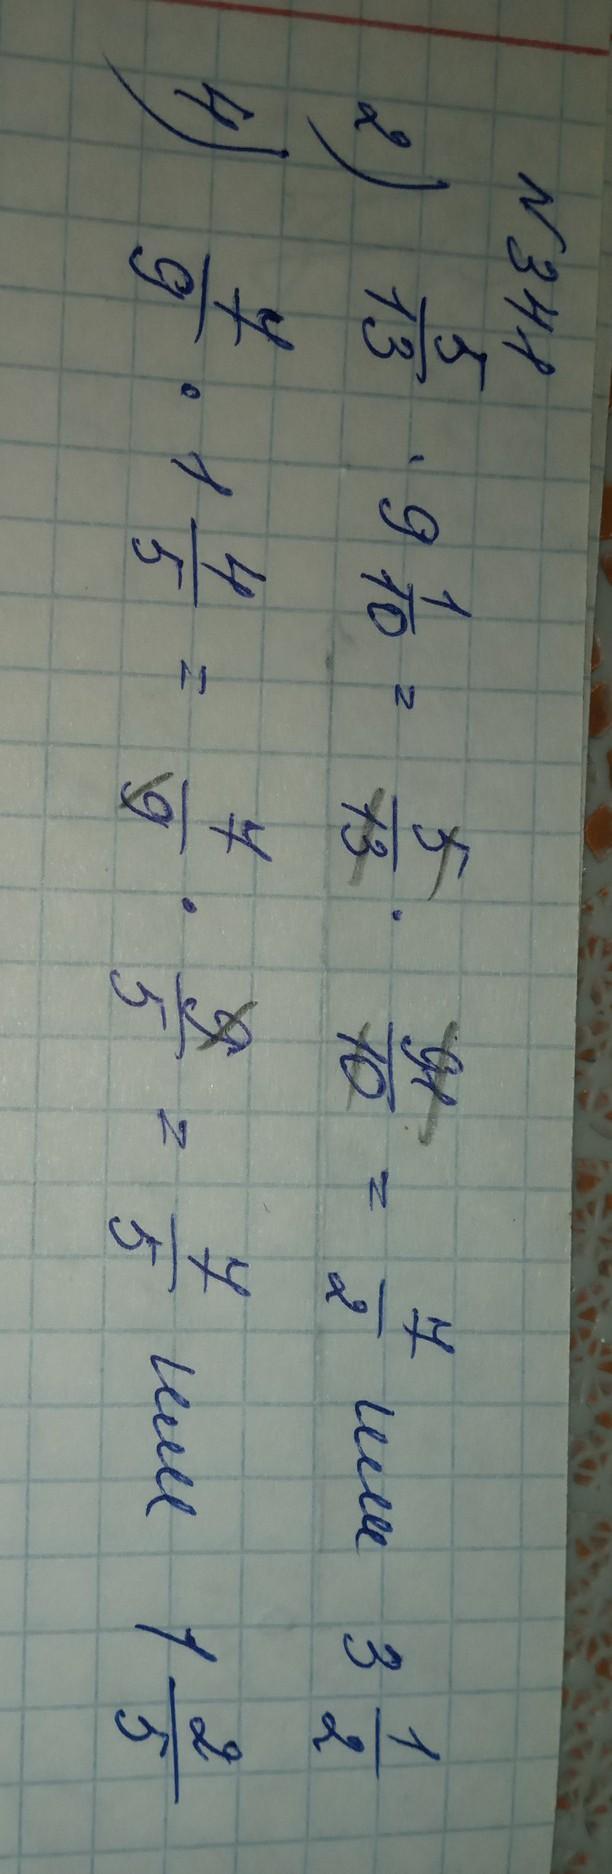 №344
2) 5/13 · 9 1/10 = 5/13 · 91/10 = 7/2 или 3 1/2
4) 7/9 · 1 4/5 = 7/9 · 9/5 = 7/5 или 1 2/5